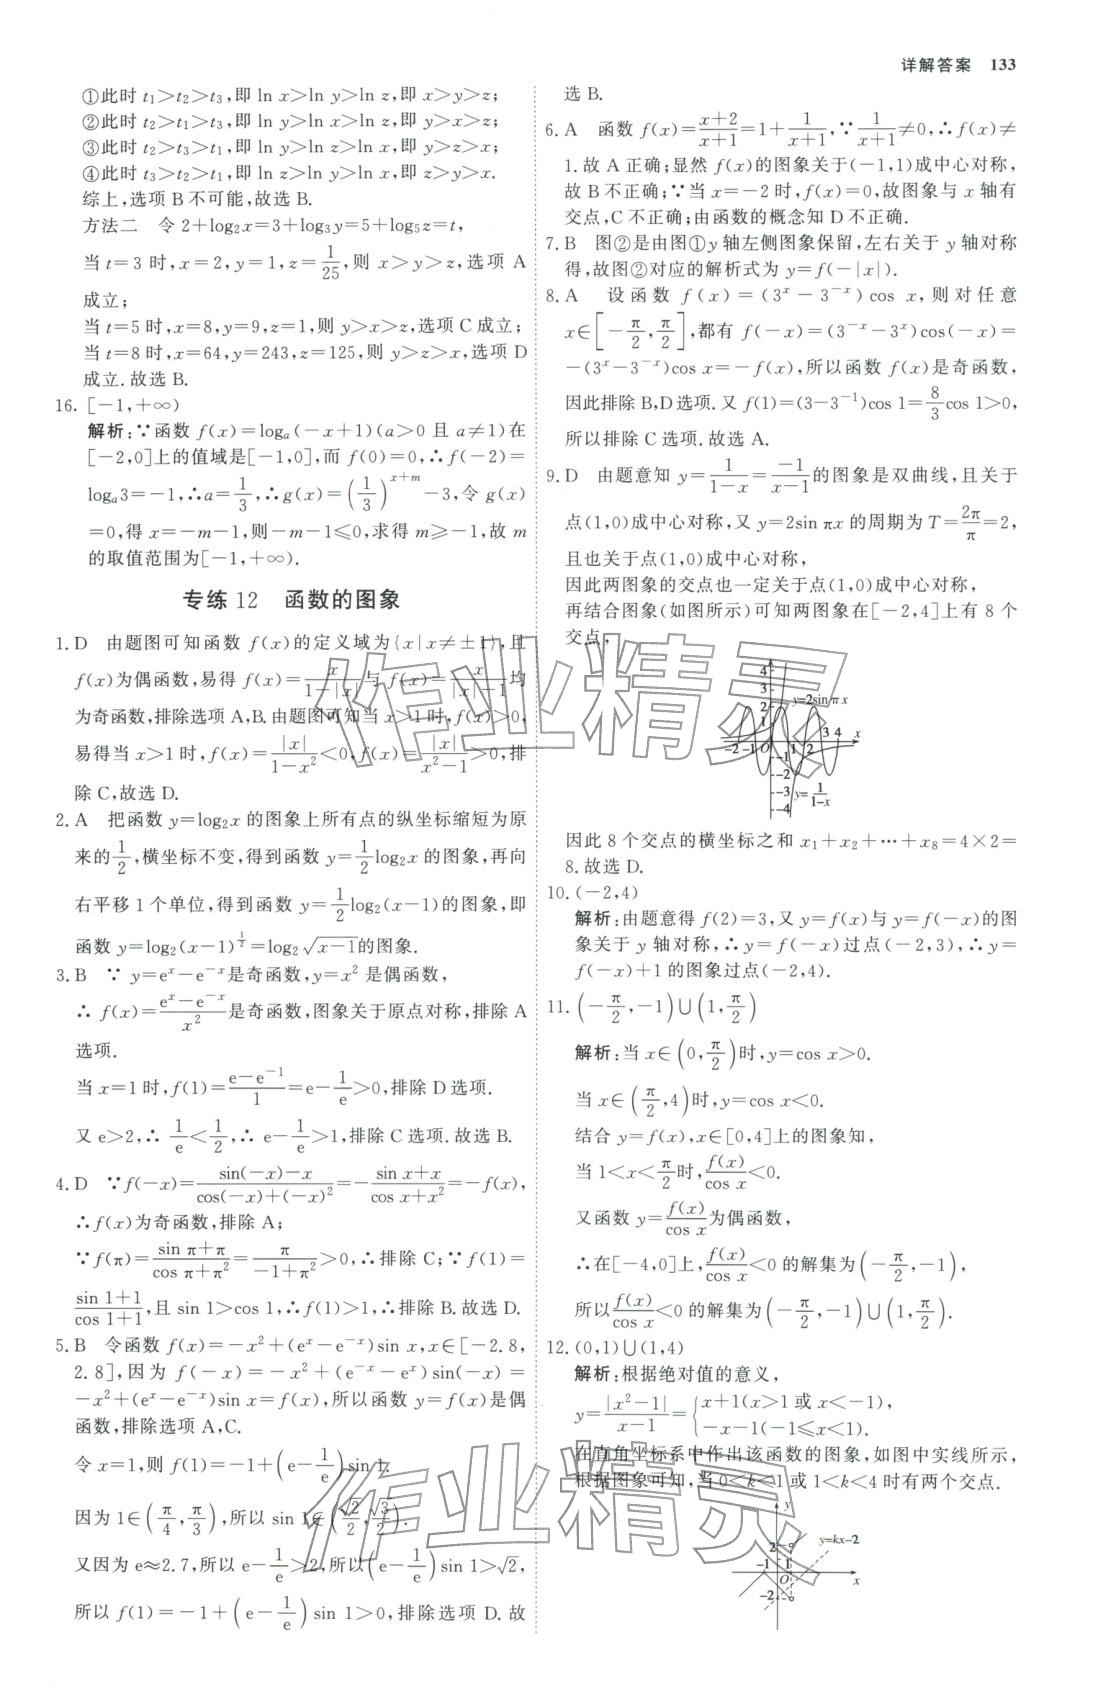 详解答案 133
①此时 t₁>t₂>t₃,即 ln x>ln y>ln z,即 x>y>z;
②此时 t₂>t₁>t₃,即 ln y>ln x>ln z,即 y>x>z;
③此时 t₂>t₃>t₁,即 ln y>ln z>ln x,即 y>z>x;
④此时 t₃>t₂>t₁,即 ln z>ln y>ln x,即 z>y>x.
综上,选项 B 不可能,故选 B.
方法二 令 2+log₂x=3+log₃y=5+log₅z=t,
当 t=3 时,x=2,y=1,z=1/25,则 x>y>z,选项 A
成立;
当 t=5 时,x=8,y=9,z=1,则 y>x>z,选项 C 成立;
当 t=8 时,x=64,y=243,z=125,则 y>z>x,选项 D
成立.故选 B.
16. [-1,+∞)
解析:∵函数 f(x)=logₐ(-x+1)(a>0 且 a≠1)在
[-2,0]上的值域是[-1,0],而 f(0)=0,∴f(-2)=
logₐ3=-1,∴a=1/3,∴g(x)=(1/3)^(x+m)-3,令 g(x)
=0,得 x=-m-1,则-m-1≤0,求得 m≥-1,故 m
的取值范围为[-1,+∞).
专练 12 函数的图象
1. D 由题图可知函数 f(x)的定义域为{x|x≠±1},且
f(x)为偶函数,易得 f(x)=x/(1-|x|)与 f(x)=x/(|x|-1)均
为奇函数,排除选项 A,B.由题图可知当 x>1 时,f(x)>0,
易得当 x>1 时,f(x)=|x|/(1-x²)<0,f(x)=|x|/(x²-1)>0,排
除 C,故选 D.
2. A 把函数 y=log₂x 的图象上所有点的纵坐标缩短为原
来的1/2,横坐标不变,得到函数 y=1/2 log₂x 的图象,再向
右平移 1 个单位,得到函数 y=1/2 log₂(x-1)的图象,即
函数 y=log₂(x-1)^(1/2)=log₂√(x-1)的图象.
3. B ∵ y=eˣ-e⁻ˣ是奇函数,y=x² 是偶函数,
∴ f(x)=(eˣ-e⁻ˣ)/x²是奇函数,图象关于原点对称,排除 A
选项.
当 x=1 时,f(1)=(e-e⁻¹)/1=e-1/e>0,排除 D 选项.
又 e>2,∴ 1/e<1/2,∴ e-1/e>1,排除 C 选项.故选 B.
4. D ∵f(-x)=(sin(-x)-x)/(cos(-x)+(-x)²)=-(sin x+x)/(cos x+x²)=-f(x),
∴f(x)为奇函数,排除 A;
∵f(π)=(sin π+π)/(cos π+π²)=π/(-1+π²)>0,∴排除 C;∵f(1)=
(sin 1+1)/(cos 1+1),且 sin 1>cos 1,∴f(1)>1,排除 B.故选 D.
5. B 令函数 f(x)=-x²+(eˣ-e⁻ˣ)sin x,x∈[-2.8,
2.8],因为 f(-x)=-x²+(e⁻ˣ-eˣ)sin(-x)=
-x²+(eˣ-e⁻ˣ)sin x=f(x),所以函数 y=f(x)是偶
函数,排除选项 A,C.
令 x=1,则 f(1)=-1+(e-1/e)sin 1.
因为 1∈(π/4,π/3),所以 sin 1∈(√2/2,√3/2).
又因为 e≈2.7,所以 e-1/e>2,所以(e-1/e)sin 1>√2,
所以 f(1)=-1+(e-1/e)sin 1>0,排除选项 D.故
选 B.
6. A 函数 f(x)=(x+2)/(x+1)=1+1/(x+1),∵1/(x+1)≠0,∴f(x)≠
1.故 A 正确;显然 f(x)的图象关于(-1,1)成中心对称,
故 B 不正确;∵当 x=-2 时,f(x)=0,故图象与 x 轴有
交点,C 不正确;由函数的概念知 D 不正确.
7. B 图②是由图①y 轴左侧图象保留,左右关于 y 轴对称
得,故图②对应的解析式为 y=f(-|x|).
8. A 设函数 f(x)=(3ˣ-3⁻ˣ)cos x,则对任意
x∈[-π/2,π/2],都有 f(-x)=(3⁻ˣ-3ˣ)cos(-x)=
-(3ˣ-3⁻ˣ)cos x=-f(x),所以函数 f(x)是奇函数,
因此排除 B,D 选项.又 f(1)=(3-3⁻¹)cos 1=8/3 cos 1>0,
所以排除 C 选项.故选 A.
9. D 由题意知 y=1/(1-x)=-1/(x-1)的图象是双曲线,且关于
点(1,0)成中心对称,又 y=2sin πx 的周期为 T=2π/π=2,
且也关于点(1,0)成中心对称,
因此两图象的交点也一定关于点(1,0)成中心对称,
再结合图象(如图所示)可知两图象在[-2,4]上有 8 个
交点,
4
3
2
1
y=2sin πx
-2 -1 O 1 2 3 4 x
-1
-2
-3
-4
y=1/(1-x)
因此 8 个交点的横坐标之和 x₁+x₂+…+x₈=4×2=
8.故选 D.
10. (-2,4)
解析:由题意得 f(2)=3,又 y=f(x)与 y=f(-x)的图
象关于 y 轴对称,∴y=f(-x)过点(-2,3),∴y=
f(-x)+1 的图象过点(-2,4).
11. (-π/2,-1)∪(1,π/2)
解析:当 x∈(0,π/2)时,y=cos x>0.
当 x∈(π/2,4)时,y=cos x<0.
结合 y=f(x),x∈[0,4]上的图象知,
当 1<x<π/2时,f(x)/cos x<0.
又函数 y=f(x)/cos x为偶函数,
∴在[-4,0]上,f(x)/cos x<0 的解集为(-π/2,-1),
所以f(x)/cos x<0 的解集为(-π/2,-1)∪(1,π/2).
12. (0,1)∪(1,4)
解析:根据绝对值的意义,
y=|x²-1|/(x-1)={x+1(x>1 或 x<-1),
-x-1(-1≤x<1).
在直角坐标系中作出该函数的图象,如图中实线所示,
根据图象可知,当 0<k<1 或 1<k<4 时有两个交点.
y
2
y=kx-2
-1 O 1 x
-2
作业精灵
作业精灵